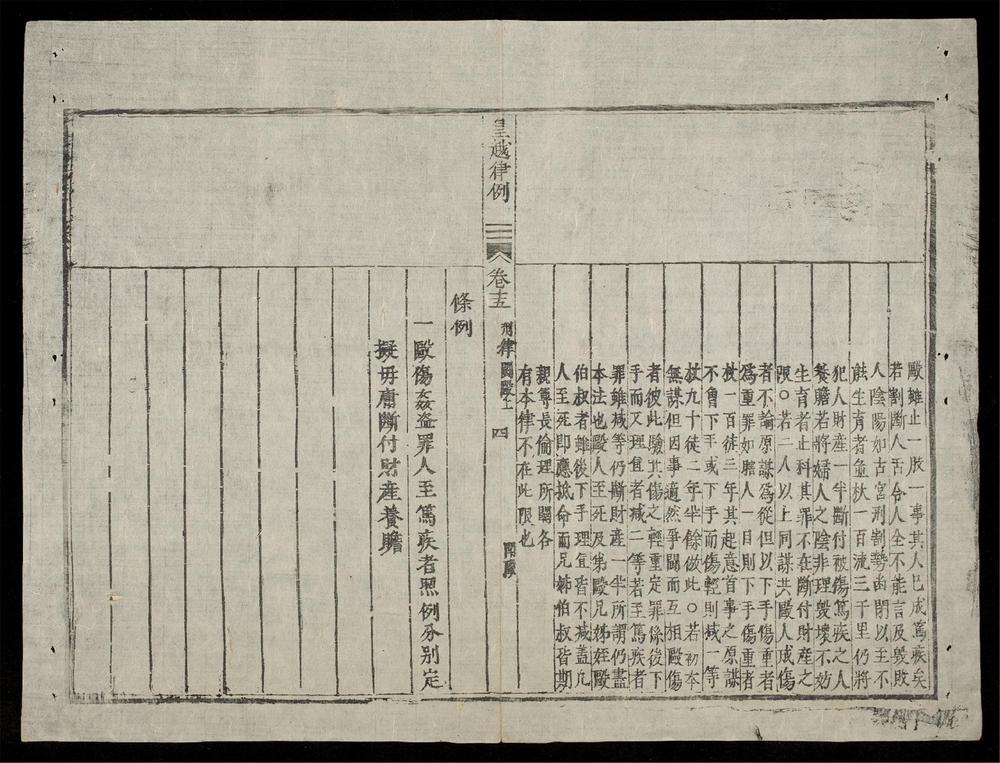 毆雖止一肢一事其人已成篤疾矣
若割斷人舌令人全不能言及毀敗
人陰陽如古宮刑割勢幽閉以至不
能生育者並杖一百流三千里仍將
犯人財産一半斷付被傷篤疾之人
養贍若將婦人之陰非理毀壞不妨
生育者止科其罪不在斷付財産之
限○若二人以上同謀共毆人成傷
者不論原謀爲從但以下手傷重者
爲重罪如瞎人一目則下手傷重者
杖一百徒三年其起意首事之原謀
不曾下手或下手而傷輕則减一等
杖九十徒二年半餘倣此○若初本
無謀但因事適然爭鬬而互相毆傷
者彼此驗其傷之輕重定罪係後下
手而又理直者减二等若至篤疾者
罪雖减等仍斷財産一半所謂仍盡
本法也毆人至死及弟毆兄姊姪毆
伯叔者雖後下手理直皆不减盖凡
人至死即應抵命而兄姊伯叔皆期
親尊長倫理所關各
有本律不在此限也
皇越律例 卷十五 刑律鬬毆上 四 鬬毆
條例
一毆傷姦盗罪人至篤疾者照例分别定
擬毋庸斷付財産養贍